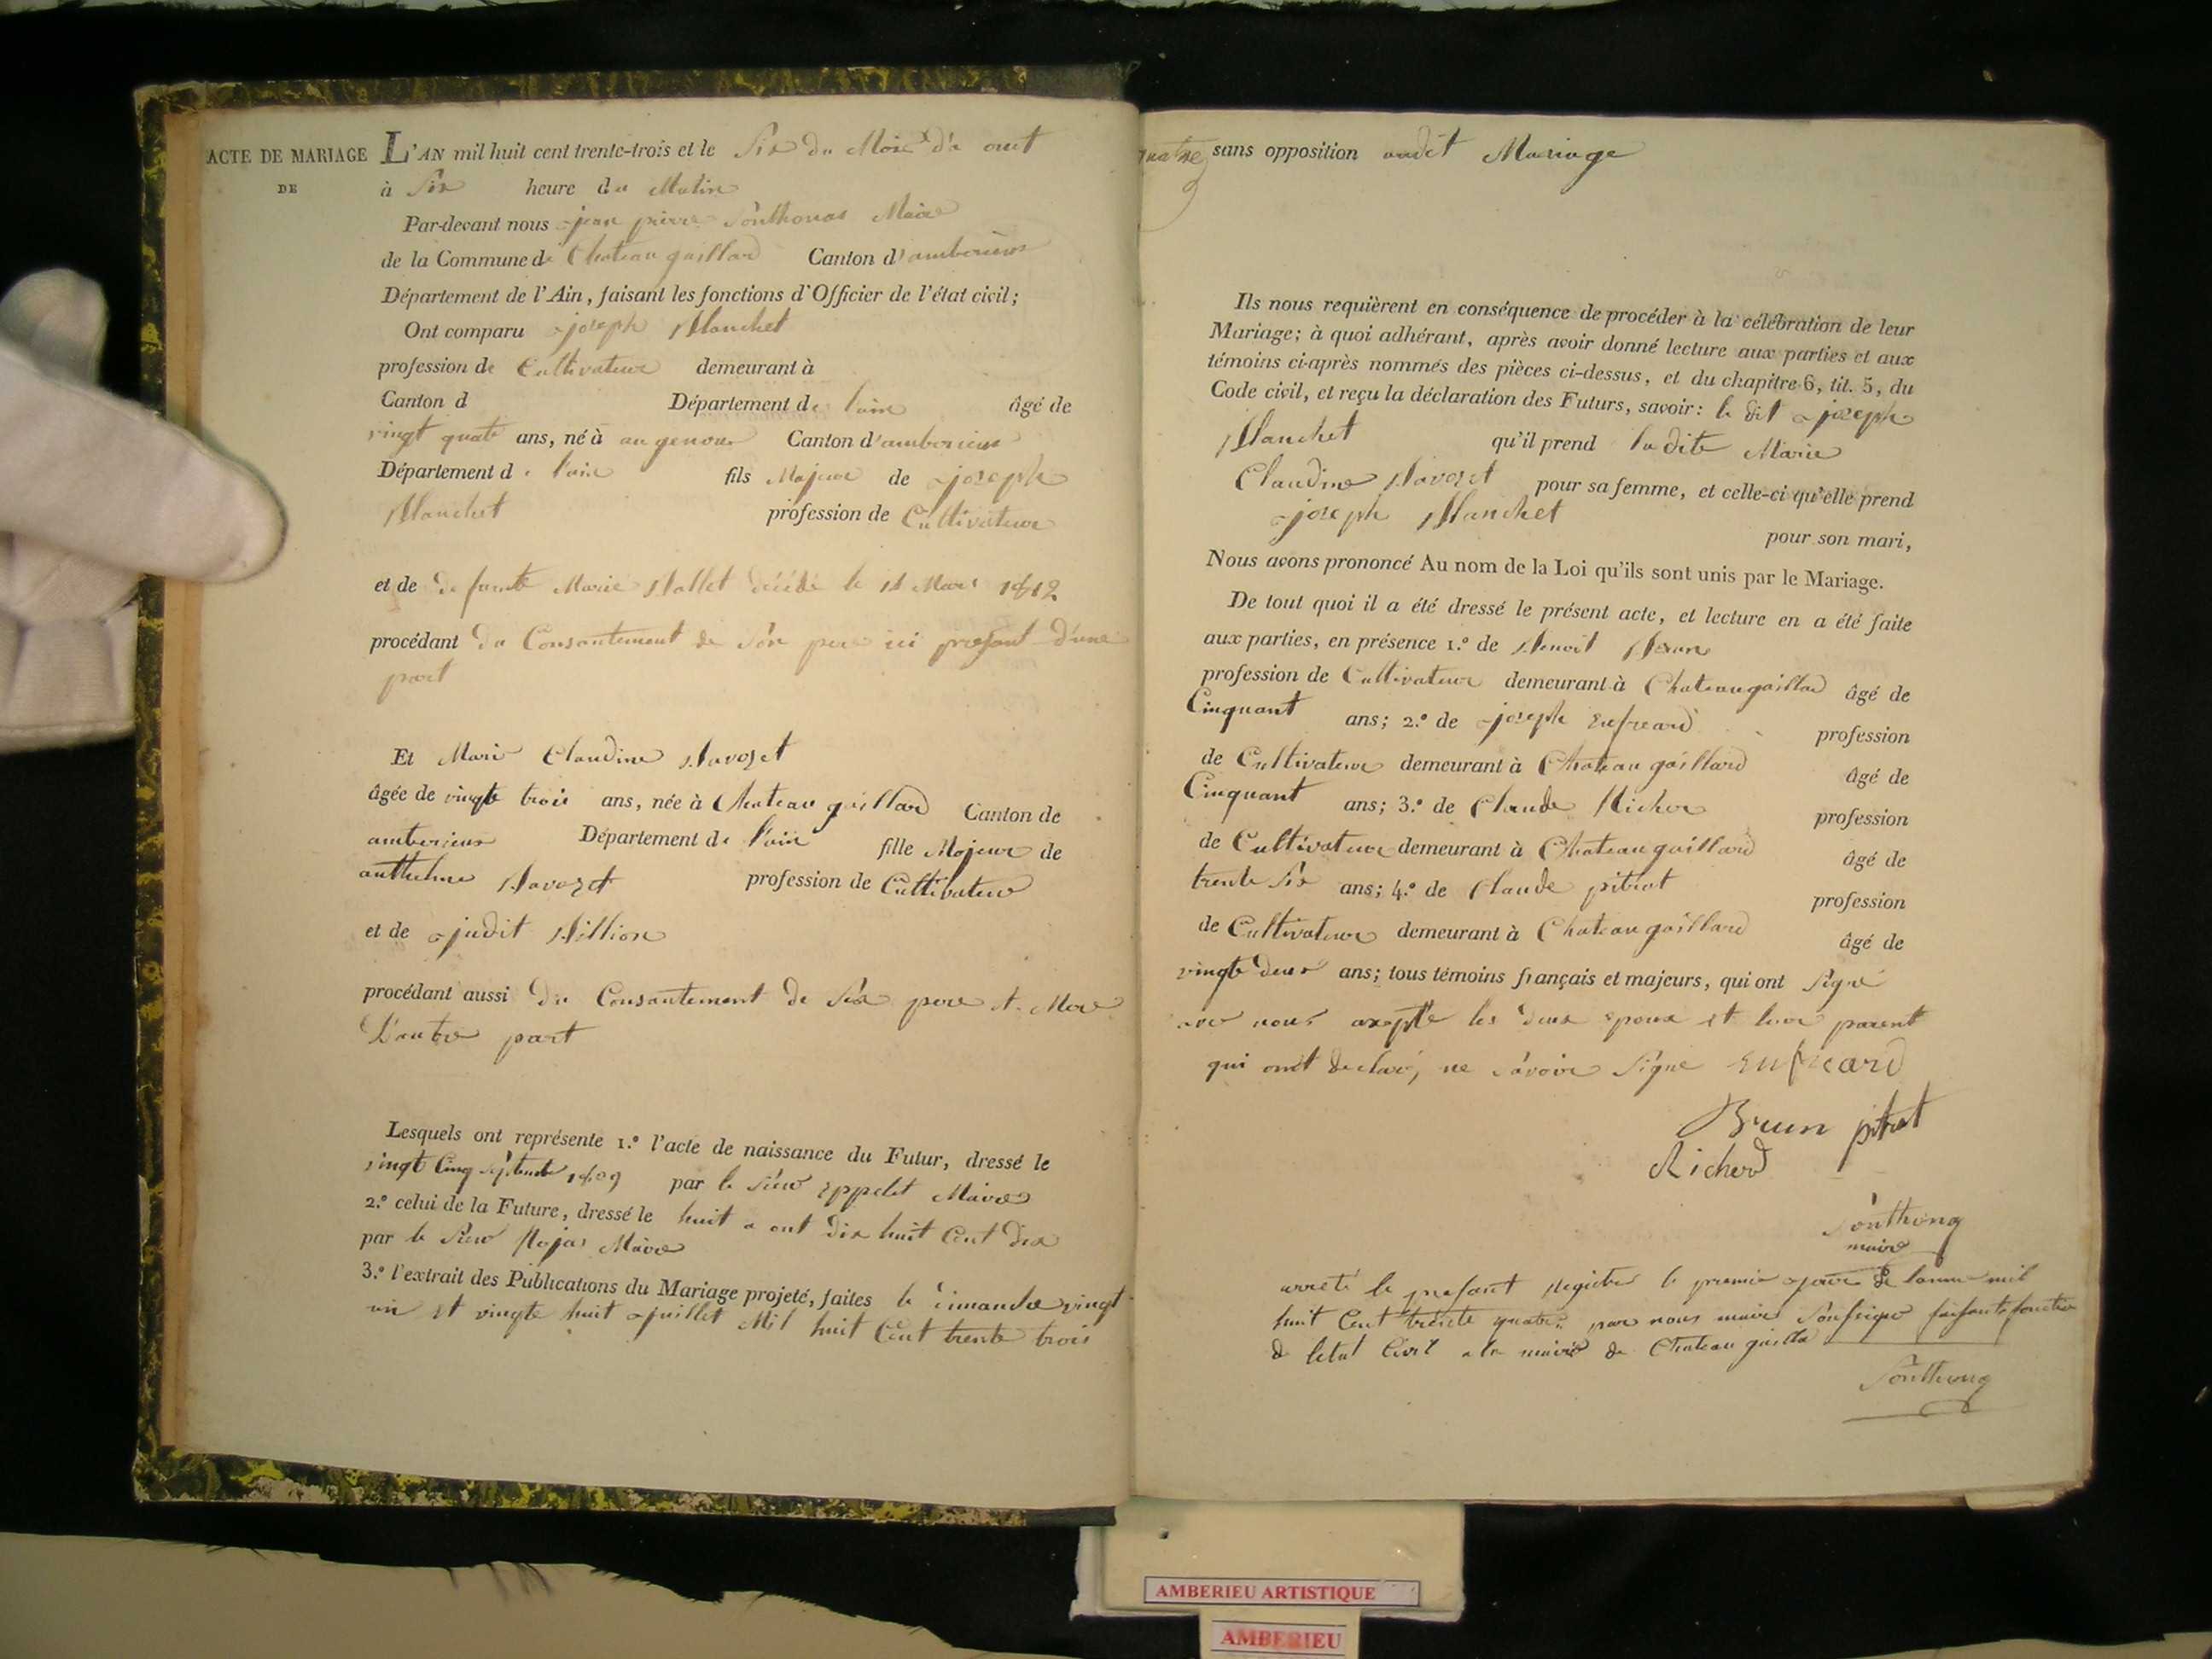 ACTE DE MARIAGE
DE
L'AN mil huit cent trente-trois et le Six du Mois d'a out
à Six heure du Matin
Par-devant nous jean pierre Sonthonas Maire
de la Commune de Chateau gaillard Canton d'amberieux
Département de l'Ain, faisant les fonctions d'Officier de l'état civil;
Ont comparu joseph Blanchet
profession de Cultivateur demeurant à
Canton d Département de l'ain âgé de
vingt quatr ans, né à Canton d'amberieux
Département de l'ain fils Majeur de joseph
Blanchet profession de Cultivateur
et de de funte Marie décédé le Mars 1812
procédant du Consantement de Son pere ici presant d'une
part
Et Marie Claudine Savozet
âgée de vingte trois ans, née à Chateau gaillard Canton de
amberieux Département de l'ain fille Majeur de
anthelme Savozet profession de Cultivateur
et de judit Billion
procédant aussi du Consantement de Ses pere et Mere
D'autre part
Lesquels ont représente 1.º l'acte de naissance du Futur, dressé le
vingt Cinq Septembre 1809 par le Sieur Maire
2.º celui de la Future, dressé le huit a out dix huit Cent dix
par le Sieur Maire
3.º l'extrait des Publications du Mariage projeté, faites le dimanche vingt
un et vingte huit juillet Mil huit Cent trente trois
quatre sans opposition audit Mariage
Ils nous requièrent en conséquence de procéder à la célébration de leur
Mariage; à quoi adhérant, après avoir donné lecture aux parties et aux
témoins ci-après nommés des pièces ci-dessus, et du chapitre 6, tit. 5, du
Code civil, et reçu la déclaration des Futurs, savoir: le dit joseph
Blanchet qu'il prend la dite Marie
Claudine Savozet pour sa femme, et celle-ci qu'elle prend
joseph Blanchet
pour son mari,
Nous avons prononcé Au nom de la Loi qu'ils sont unis par le Mariage.
De tout quoi il a été dressé le présent acte, et lecture en a été faite
aux parties, en présence 1.º de Benoit Brun
profession de Cultivateur demeurant à Chateau gaillard âgé de
Cinquant ans; 2.º de joseph Eufreard profession
de Cultivateur demeurant à Chateau gaillard âgé de
Cinquant ans; 3.º de Claude Richer profession
de Cultivateur demeurant à Chateau gaillard âgé de
trente Six ans; 4.º de Claude pitrat profession
de Cultivateur demeurant à Chateau gaillard âgé de
vingte deux ans; tous témoins français et majeurs, qui ont Signé
avec nous axepte les deux epoux et leur parent
qui ont declaré, ne Savoir Signe Eufreard
Brun pitrat
Richerd
Sonthonas
maire
arreté le presant Registre le premier jour de lannee mil
huit Cent trente quatre par nous maire Soussigné faisant fonction
de letat Civil a la mairie de Chateau gailla
Sonthonas
AMBERIEU ARTISTIQUE
AMBERIEU